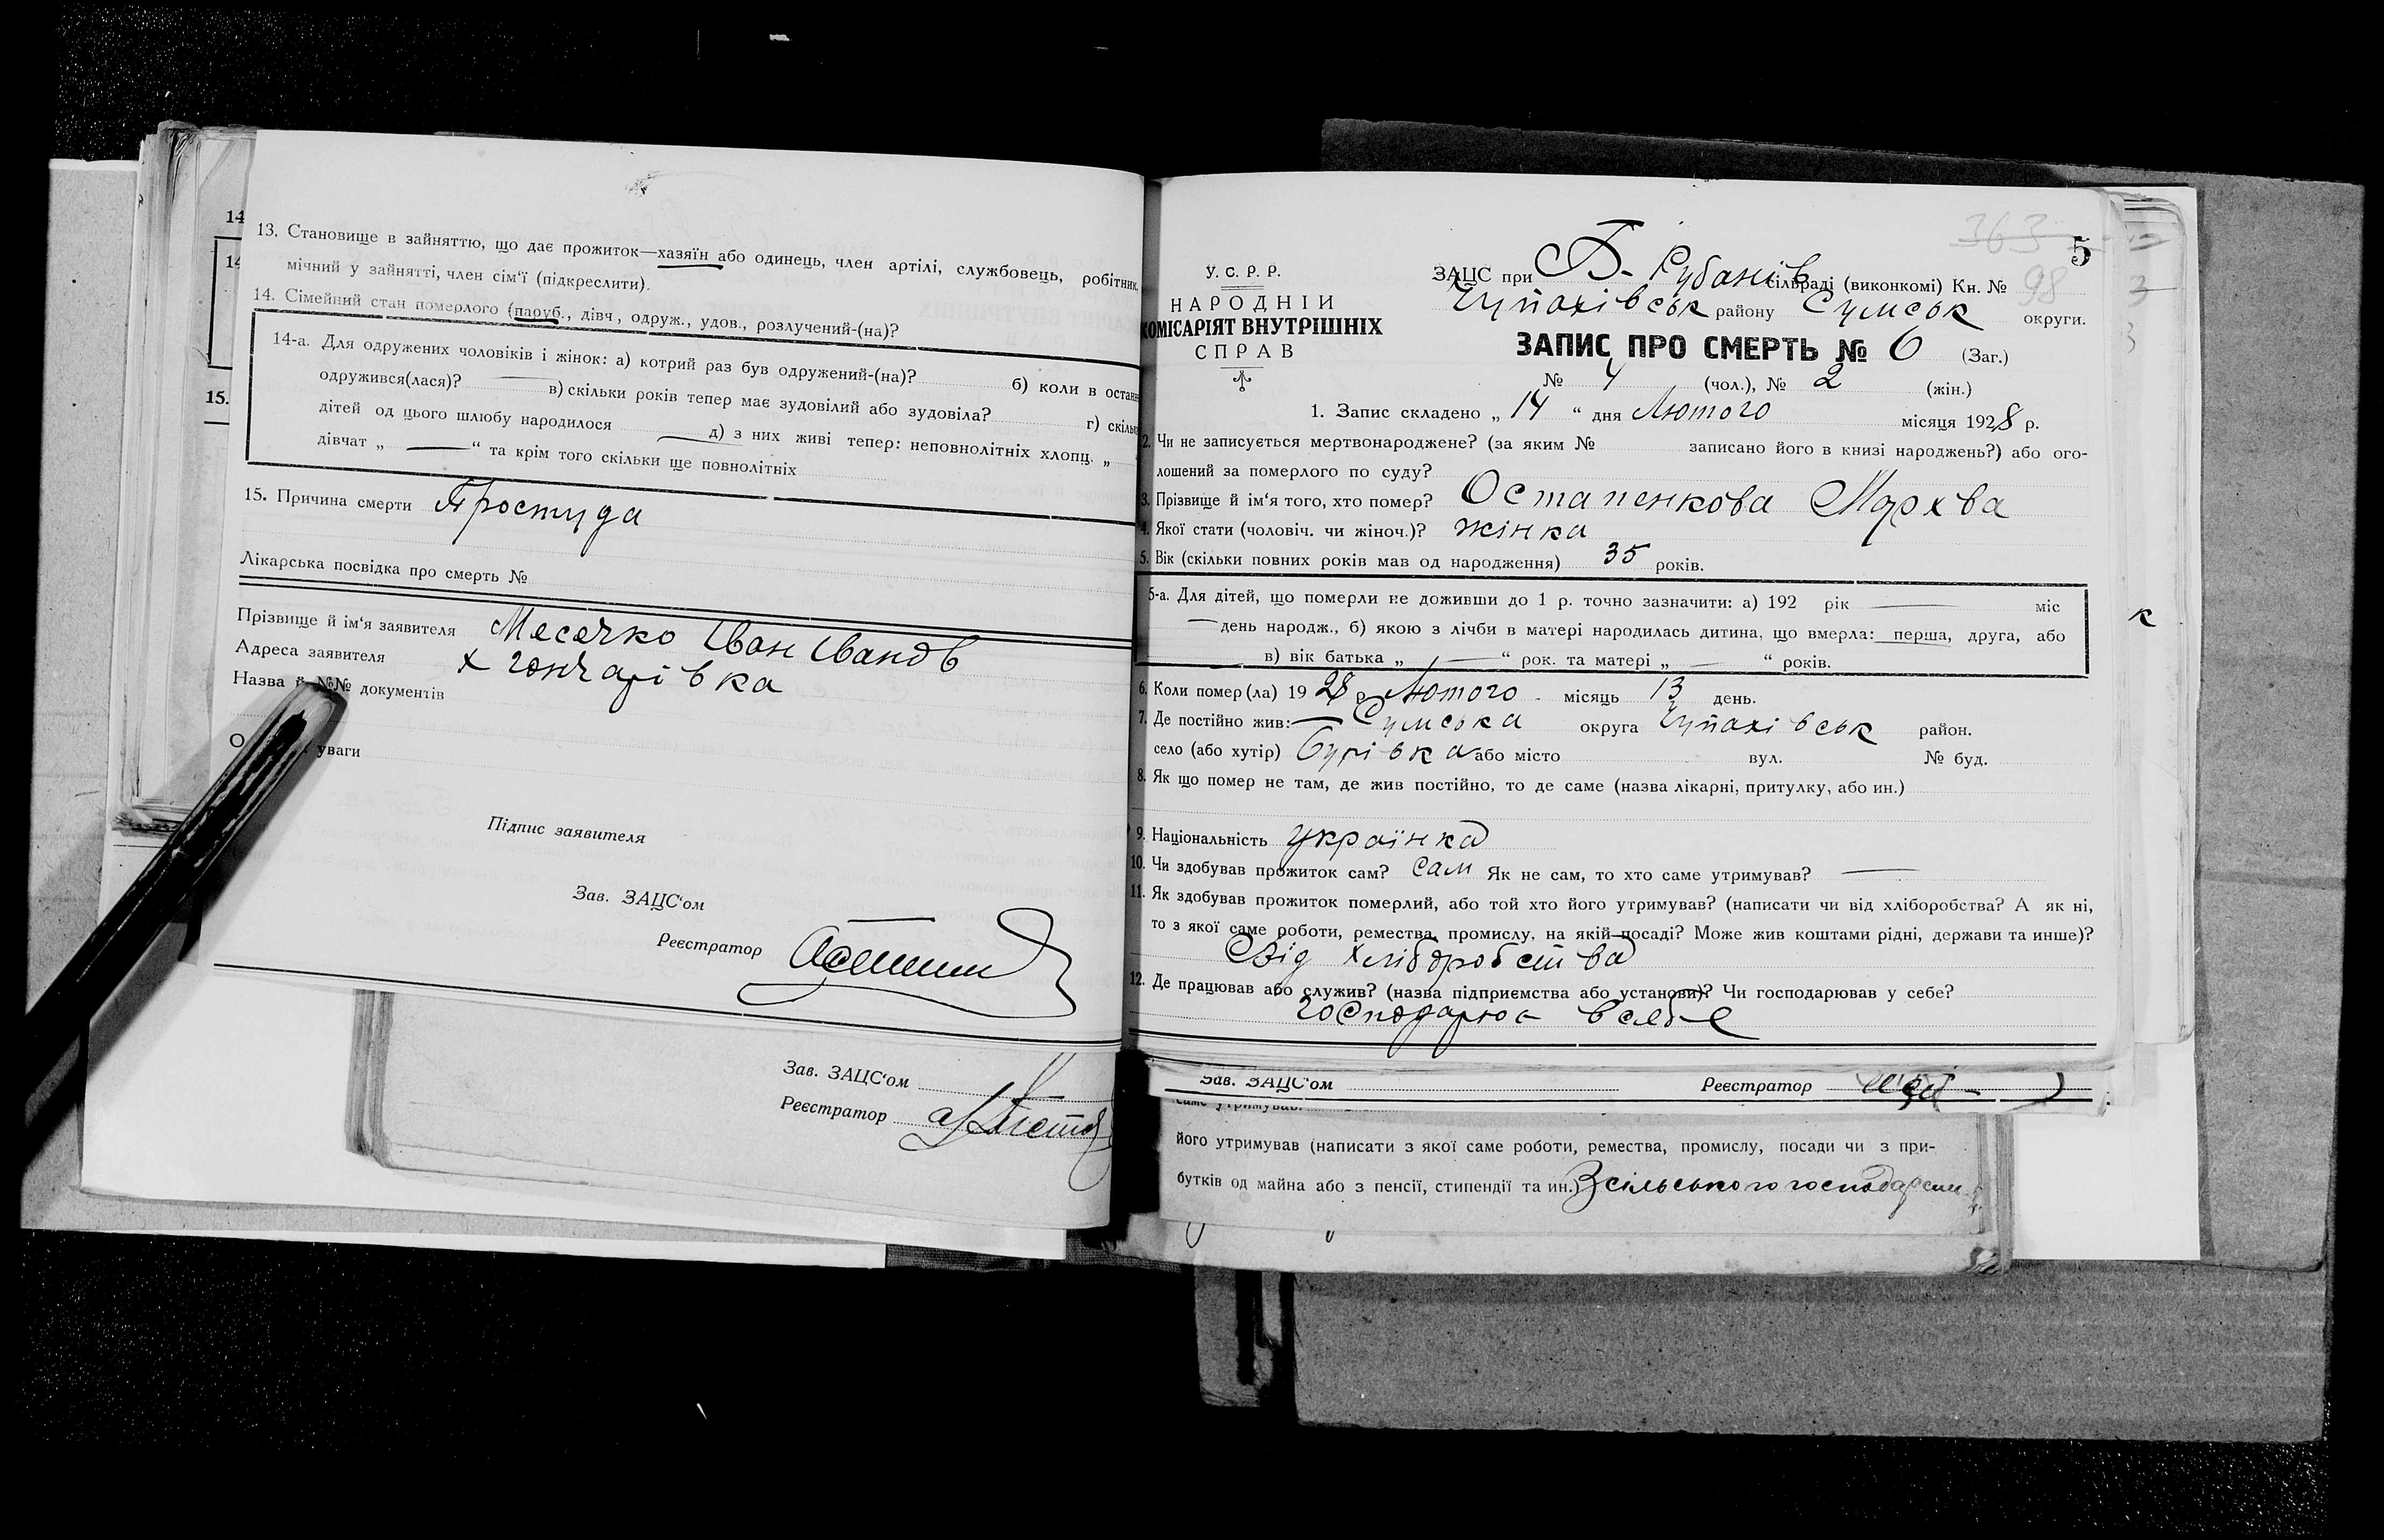 14
14
15.
13. Становище в зайняттю, що дає прожиток—хазяїн або одинець, член артілі, службовець, робітник,
мічний у зайнятті, член сім'ї (підкреслити).
14. Сімейний стан померлого (паруб., дівч., одруж., удов., розлучений-(на)?
14-а. Для одружених чоловіків і жінок: а) котрий раз був одружений-(на)? б) коли в остан
одружився(лася)? в) скільки років тепер має зудовілий або зудовіла? г) скіль
дітей од цього шлюбу народилося д) з них живі тепер: неповнолітніх хлопц. „
дівчат „ — “ та крім того скільки ще повнолітніх
15. Причина смерти Простуда
Лікарська посвідка про смерть №
Прізвище й ім‘я заявителя Месечко Іван Іванов
Адреса заявителя х Гончарівка
Назва й №№ документів
О уваги
Підпис заявителя
Зав. ЗАЦС‘ом
Реєстратор
Зав. ЗАЦС‘ом
Реєстратор
363
5
98
У. С. Р. Р.
НАРОДНІЙ
КОМІСАРІЯТ ВНУТРІШНІХ
СПРАВ
ЗАЦС при Б-Рубанів сільраді (виконкомі) Кн. №
Чупахівськ району Сумськ округи.
ЗАПИС ПРО СМЕРТЬ № 6 (Заг.)
№ 4 (чол.), № 2 (жін.)
1. Запис складено „ 14 “ дня Лютого місяця 1928 р.
2. Чи не записується мертвонароджене? (за яким № записано його в книзі народжень?) або ого-
лошений за померлого по суду?
3. Прізвище й ім‘я того, хто помер? Остапенкова Мархва
4. Якої стати (чоловіч. чи жіноч.)? жінка
5. Вік (скільки повних років мав од народження) 35 років.
5-а. Для дітей, що померли не доживши до 1 р. точно зазначити: а) 192 рік — міс
— день народж., б) якою з лічби в матері народилась дитина, що вмерла: перша, друга, або
в) вік батька „ — “ рок. та матері „ — “ років.
6. Коли помер(ла) 1928 р Лютого місяць 13 день.
7. Де постійно жив: — Сумська округа Чупахівськ район.
село (або хутір) Бурівка або місто вул. № буд.
8. Як що помер не там, де жив постійно, то де саме (назва лікарні, притулку, або ин.)
9. Національність українка
10. Чи здобував прожиток сам? Сам Як не сам, то хто саме утримував? —
11. Як здобував прожиток померлий, або той хто його утримував? (написати чи від хліборобства? А як ні,
то з якої саме роботи, ремества, промислу, на якій посаді? Може жив коштами рідні, держави та инше)?
Від хліборобства
12. Де працював або служив? (назва підприємства або установи)? Чи господарював у себе?
Господарює в себе
Зав. ЗАЦС‘ом Реєстратор
саме утримував.
його утримував (написати з якої саме роботи, ремества, промислу, посади чи з при-
бутків од майна або з пенсії, стипендії та ин.) З сільського
к